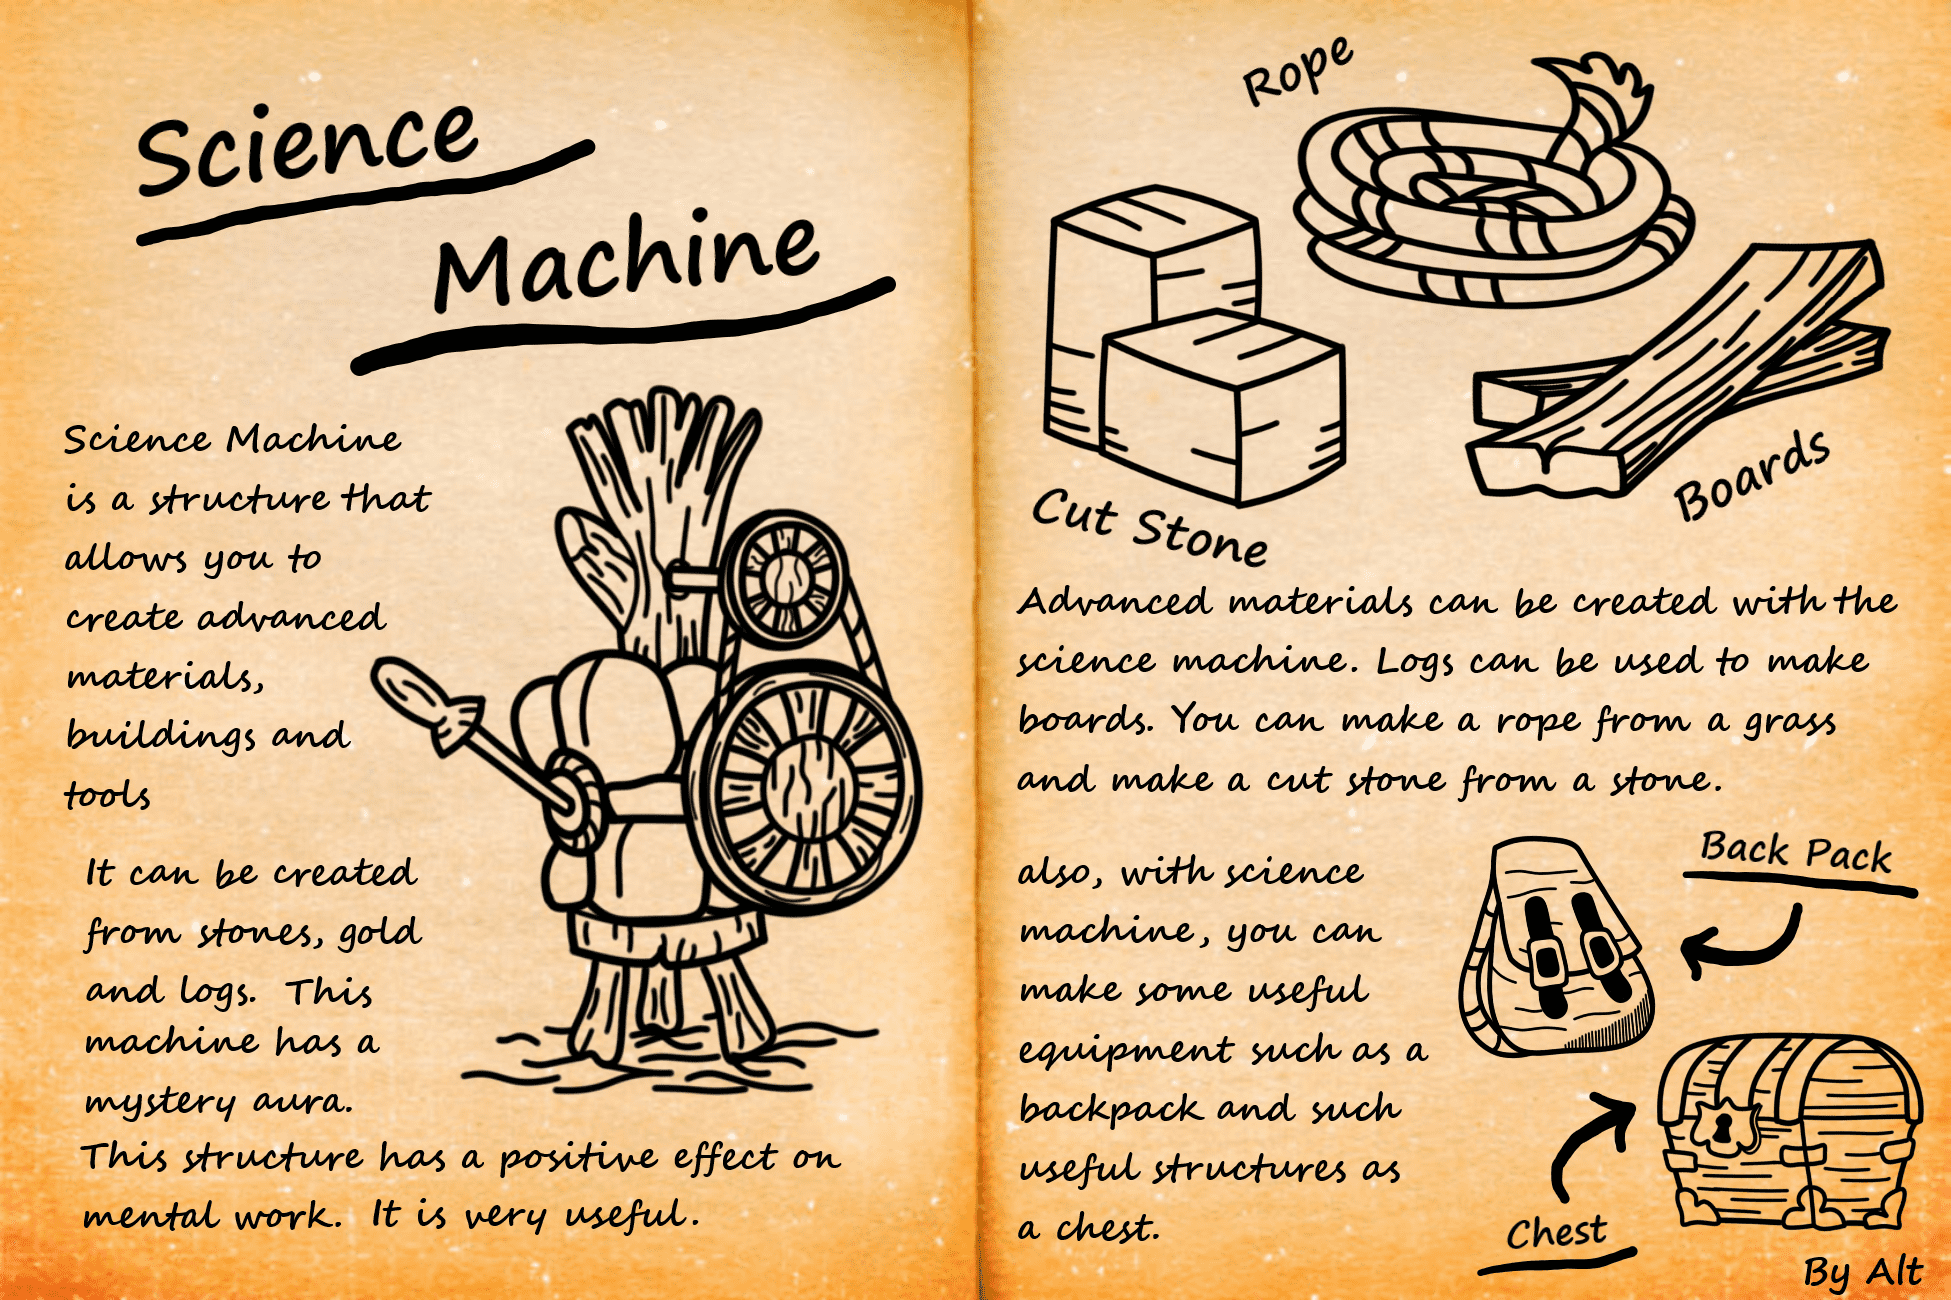 Science
Machine
Science Machine
is a structure that
allows you to
create advanced
materials,
buildings and
tools
It can be created
from stones, gold
and logs. This
machine has a
mystery aura.
This structure has a positive effect on
mental work. It is very useful.
Rope
Cut Stone
Boards
Advanced materials can be created with the
science machine. Logs can be used to make
boards. You can make a rope from a grass
and make a cut stone from a stone.
also, with science
machine, you can
make some useful
equipment such as a
backpack and such
useful structures as
a chest.
Back Pack
Chest
By Alt